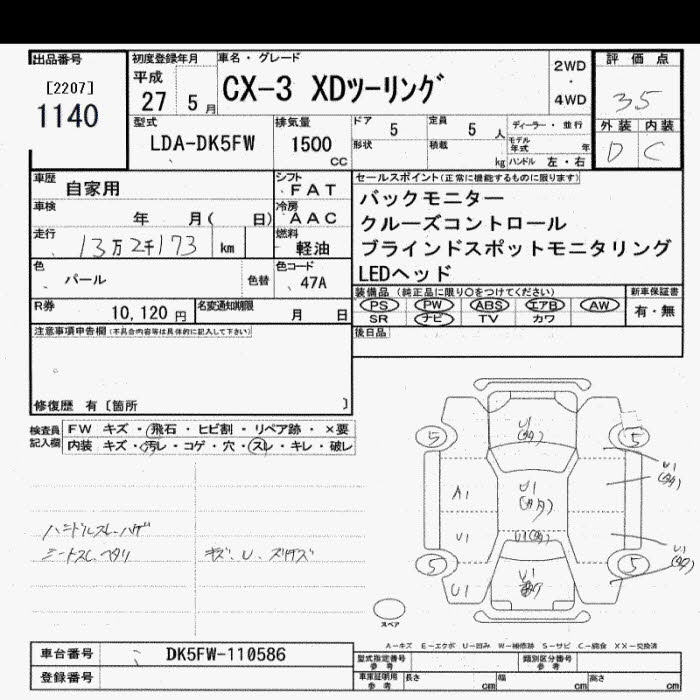 出品番号
[2207]
1140
初度登録年月
平成
27 5月
車名・グレード
CX-3 XDツーリング
2WD
・
4WD
評価点
35
外装 内装
D C
型式
LDA-DK5FW
排気量
1500
cc
ドア 5
定員 5 人
形状
積載 kg
ディーラー・並行
モデル年式 年
ハンドル 左・右
車歴
自家用
シフト
FAT
車検
年 月( 日)
冷房
AAC
走行
13万2千173 km
燃料
軽油
色
パール
色替
色コード
47A
R券
10,120 円
名変通知期限
月 日
セールスポイント(正常に機能するものに限ります)
バックモニター
クルーズコントロール
ブラインドスポットモニタリング
LEDヘッド
装備品(純正品に限り○をつけてください)
PS PW ABS エアB AW
SR ナビ TV カワ
新車保証書
有・無
後日品
注意事項申告欄(不具合内容等は具体的に記入して下さい)
修復歴 有〔箇所 〕
検査員
記入欄
FW キズ・飛石・ヒビ割・リペア跡・×要
内装 キズ・汚レ・コゲ・穴・スレ・キレ・破レ
ハンドルスレ ハゲ
シートスレ ヘタリ
キズ、U、スリキズ
5
5
5
5
A1
U1
U1
U1
U1
U1
U1
U1
U1
スペア
A-キズ E-エクボ U-凹み W-補修跡 S-サビ C-腐食 XX-交換済
車台番号
DK5FW-110586
登録番号
型式指定番号
参考
類別区分番号
参考
車庫証明用
参考
長さ cm
幅 cm
高さ cm